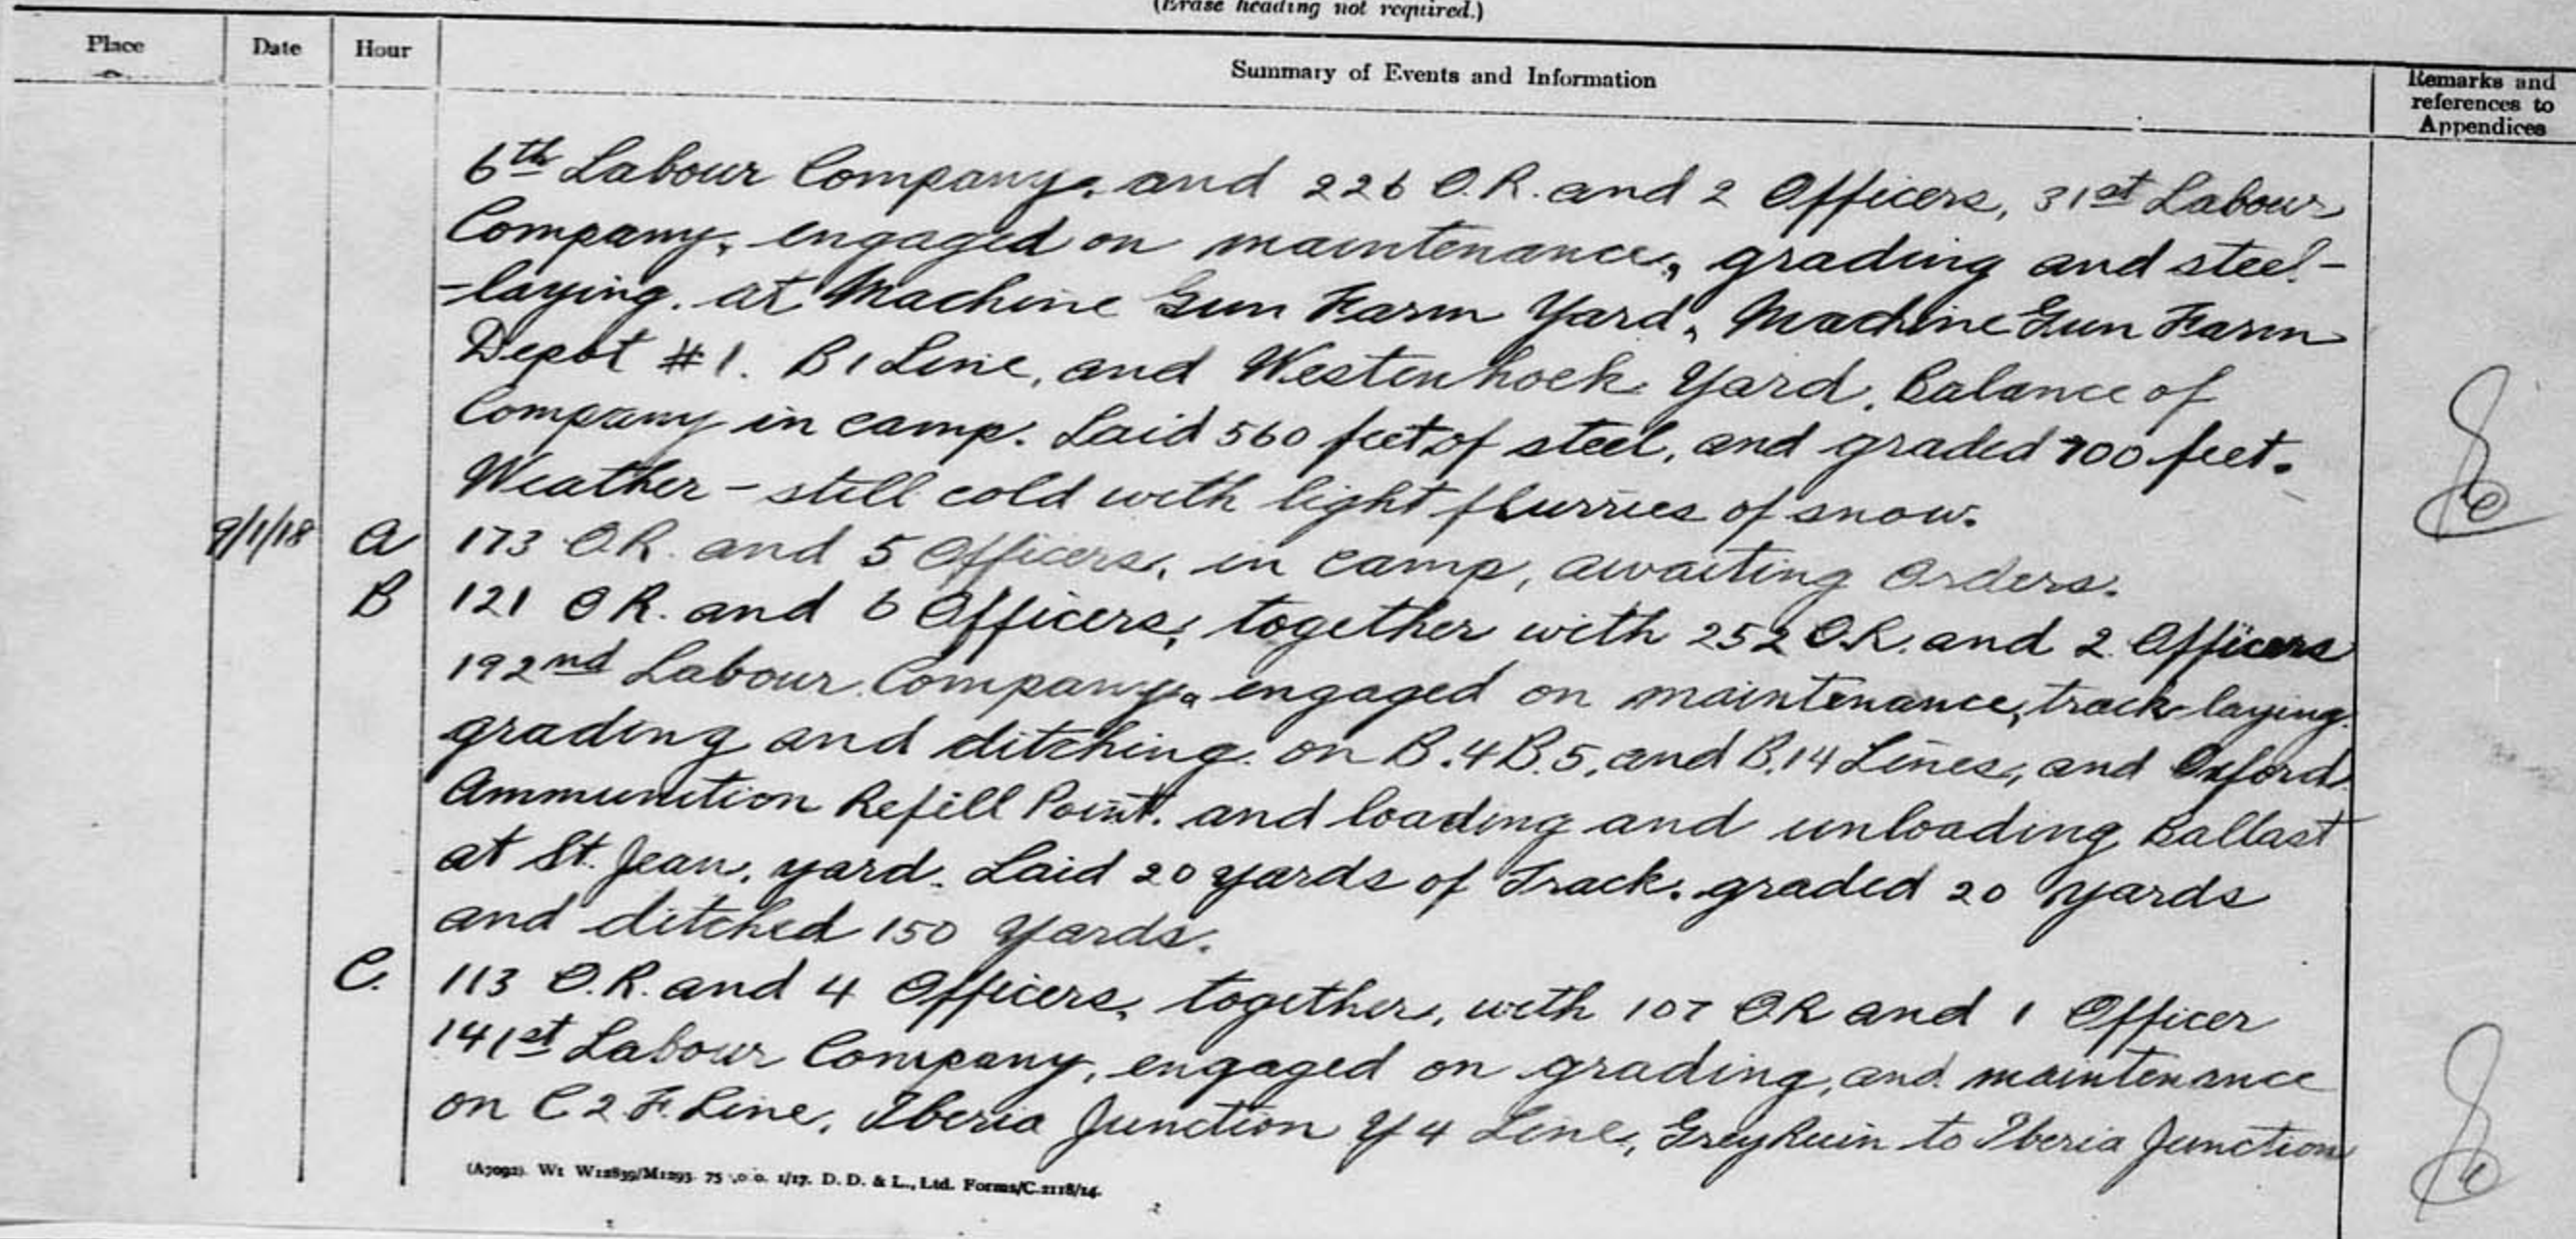 (Erase heading not required.)
Place
Date
Hour
Summary of Events and Information
Remarks and
references to
Appendices
6th Labour Company, and 226 O.R. and 2 Officers, 31st Labour
Company, engaged on maintenance, grading and steel-
-laying. at Machine Gun Farm Yard, Machine Gun Farm
Depot #1. B1 Line, and Westenhoek Yard. Balance of
Company in camp. Laid 560 feet of steel, and graded 700 feet.
Weather - still cold with light flurries of snow.
9/1/18 A 173 O.R. and 5 Officers, in camp, awaiting Orders.
B 121 O R. and 6 Officers, together with 252 O.R. and 2 Officers
192nd Labour Company, engaged on maintenance, track-laying.
grading and ditching on B.4 B.5, and B.14 Lines, and Oxford
Ammunition Refill Point. and loading and unloading Ballast
at St. Jean, yard. Laid 20 yards of Track. graded 20 yards
and ditched 150 yards.
C. 113 O.R. and 4 Officers, together, with 107 OR and 1 Officer
141st Labour Company, engaged on grading, and maintenance
on C 2 F. Line, Iberia Junction Y 4 Line, Grey Ruin to Iberia Junction
(A7092). Wt W12839/M1293. 75 ,0 0. 1/17. D. D. & L., Ltd. Forms/C.2118/14.